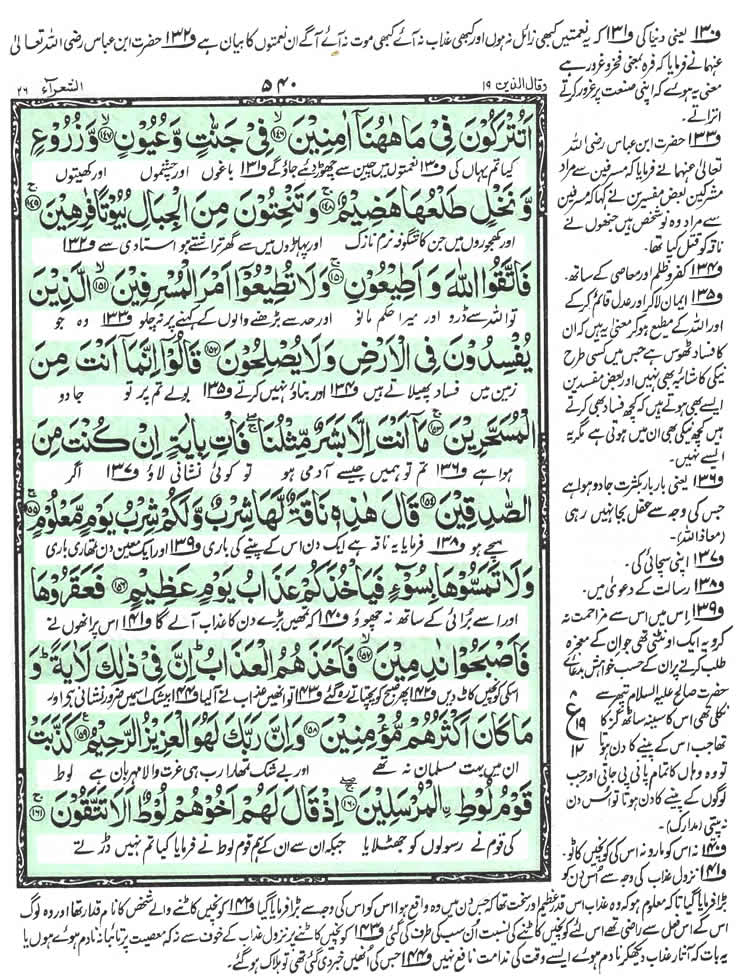 ف۱۳۰ یعنی دنیا کی ف۱۳۱ کہ یہ نعمتیں کبھی زائل نہ ہوں اور کبھی عذاب نہ آئے کبھی موت نہ آئے آگے ان نعمتوں کا بیان ہے ف۱۳۲ حضرت ابن عباس رضی اللہ تعالیٰ
عنہما نے فرمایا کہ فرہ بمعنی فخر و غرور ہے
معنی یہ ہوئے کہ اپنی صنعت پر غرور کرتے
اتراتے۔
وقال الذین ۱۹
۵۴۰
الشعرآء ۲۶
اَتُتْرَكُوْنَ فِیْ مَا هٰهُنَاۤ اٰمِنِیْنَ ﴿۱۴۶﴾ فِیْ جَنّٰتٍ وَّ عُیُوْنٍ ﴿۱۴۷﴾ وَّ زُرُوْعٍ
کیا تم یہاں کی ف۱۳۰ نعمتوں میں چین سے چھوڑ دئیے جاؤ گے ف۱۳۱ باغوں اور چشموں اور کھیتوں
وَّ نَخْلٍ طَلْعُهَا هَضِیْمٌ ﴿۱۴۸﴾ وَ تَنْحِتُوْنَ مِنَ الْجِبَالِ بُیُوْتًا فٰرِهِیْنَ ﴿۱۴۹﴾
اور کھجوروں میں جن کا شگوفہ نرم نازک اور پہاڑوں میں سے گھر تراشتے ہو استادی سے ف۱۳۲
فَاتَّقُوا اللّٰهَ وَ اَطِیْعُوْنِ ﴿۱۵۰﴾ وَ لَا تُطِیْعُوْۤا اَمْرَ الْمُسْرِفِیْنَ ﴿۱۵۱﴾ الَّذِیْنَ
تو اللہ سے ڈرو اور میرا حکم مانو اور حد سے بڑھنے والوں کے کہنے پر نہ چلو ف۱۳۳ وہ جو
یُفْسِدُوْنَ فِی الْاَرْضِ وَ لَا یُصْلِحُوْنَ ﴿۱۵۲﴾ قَالُوْۤا اِنَّمَاۤ اَنْتَ مِنَ
زمین میں فساد پھیلاتے ہیں ف۱۳۴ اور بناؤ نہیں کرتے ف۱۳۵ بولے تم پر تو جادو
الْمُسَحَّرِیْنَ ﴿۱۵۳﴾ مَاۤ اَنْتَ اِلَّا بَشَرٌ مِّثْلُنَا فَاْتِ بِاٰیَةٍ اِنْ كُنْتَ مِنَ
ہوا ہے ف۱۳۶ تم تو ہمیں جیسے آدمی ہو تو کوئی نشانی لاؤ ف۱۳۷ اگر
الصّٰدِقِیْنَ ﴿۱۵۴﴾ قَالَ هٰذِهٖ نَاقَةٌ لَّهَا شِرْبٌ وَّ لَكُمْ شِرْبُ یَوْمٍ مَّعْلُوْمٍ ﴿۱۵۵﴾
سچے ہو ف۱۳۸ فرمایا یہ ناقہ ہے ایک دن اس کے پینے کی باری ف۱۳۹ اور ایک معین دن تمہاری باری
وَ لَا تَمَسُّوْهَا بِسُوْٓءٍ فَیَاْخُذَكُمْ عَذَابُ یَوْمٍ عَظِیْمٍ ﴿۱۵۶﴾ فَعَقَرُوْهَا
اور اسے برائی کے ساتھ نہ چھوؤ ف۱۴۰ کہ تمہیں بڑے دن کا عذاب آلے گا ف۱۴۱ اس پر انھوں نے
فَاَصْبَحُوْا نٰدِمِیْنَ ﴿۱۵۷﴾ فَاَخَذَهُمُ الْعَذَابُ اِنَّ فِیْ ذٰلِكَ لَاٰیَةً وَ
اسکی کونچیں کاٹ دیں ف۱۴۲ پھر صبح کو پچتاتے رہ گئے ف۱۴۳ تو انھیں عذاب نے آلیا ف۱۴۴ بیشک اسمیں ضرور نشانی ہے اور
مَا كَانَ اَكْثَرُهُمْ مُّؤْمِنِیْنَ ﴿۱۵۸﴾ وَ اِنَّ رَبَّكَ لَهُوَ الْعَزِیْزُ الرَّحِیْمُ ﴿۱۵۹﴾ كَذَّبَتْ
ان میں بہت مسلمان نہ تھے اور بے شک تمہارا رب ہی عزت والا مہربان ہے لوط
قَوْمُ لُوْطِ ِ۟الْمُرْسَلِیْنَ ﴿۱۶۰﴾ اِذْ قَالَ لَهُمْ اَخُوْهُمْ لُوْطٌ اَلَا تَتَّقُوْنَ ﴿۱۶۱﴾
کی قوم نے رسولوں کو جھٹلایا جبکہ ان سے ان کے ہم قوم لوط نے فرمایا کیا تم نہیں ڈرتے
ف۱۳۳ حضرت ابن عباس رضی اللہ
تعالیٰ عنہما نے فرمایا کہ مسرفین سے مراد
مشرکین بعض مفسرین نے کہا کہ مسرفین
سے مراد وہ نو شخص ہیں جنھوں نے
ناقہ کو قتل کیا تھا۔
ف۱۳۴ کفر و ظلم اور معاصی کے ساتھ۔
ف۱۳۵ ایمان لا کر اور عدل قائم کر کے
اور اللہ کے مطیع ہو کر معنی یہ ہیں کہ ان
کا فساد ٹھوس ہے جس میں کسی طرح
نیکی کا شائبہ بھی نہیں اور بعض مفسدین
ایسے بھی ہوتے ہیں کہ کچھ فساد بھی کرتے
ہیں کچھ نیکی بھی ان میں ہوتی ہے مگر یہ
ایسے نہیں۔
ف۱۳۶ یعنی بار بار بکثرت جادو ہوا ہے
جس کی وجہ سے عقل بجا نہیں رہی
(معاذ اللہ)۔
ف۱۳۷ اپنی سچائی کی۔
ف۱۳۸ رسالت کے دعویٰ میں۔
ف۱۳۹ اس میں اس سے مزاحمت نہ
کرو یہ ایک اونٹنی تھی جو ان کے معجزہ
طلب کرنے پر ان کے حسب خواہش بدعائے
حضرت صالح علیہ السلام پتھر سے
نکلی تھی اس کا سینہ ساٹھ گز کا
تھا جب اس کے پینے کا دن ہوتا
تو وہ وہاں کا تمام پانی پی جاتی اور جب
لوگوں کے پینے کا دن ہوتا تو اس دن
نہ پیتی (مدارک)۔
۸
ع
۱۹
۱۲
ف۱۴۰ نہ اس کو مارو نہ اس کی کونچیں کاٹو۔
ف۱۴۱ نزول عذاب کی وجہ سے اس دن کو
بڑا فرمایا گیا تاکہ معلوم ہو کہ وہ عذاب اس قدر عظیم اور سخت تھا کہ جس دن میں وہ واقع ہوا اس کو اس کی وجہ سے بڑا فرمایا گیا ف۱۴۲ کونچیں کاٹنے والے شخص کا نام قدار تھا اور وہ لوگ
اس کے اس فعل سے راضی تھے اس لئے کونچیں کاٹنے کی نسبت ان سب کی طرف کی گئی ف۱۴۳ کونچیں کاٹنے پر نزول عذاب کے خوف سے نہ کہ معصیت پر تائبانہ نادم ہوئے ہوں یا
یہ بات کہ آثار عذاب دیکھ کر نادم ہوئے ایسے وقت کی ندامت نافع نہیں ف۱۴۴ جس کی انھیں خبر دی گئی تھی تو ہلاک ہو گئے۔